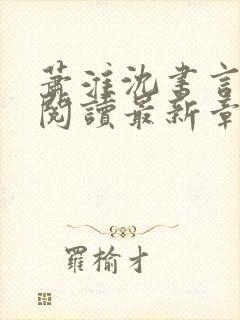 蕭淮沈書言
閱讀最新章
羅榆才